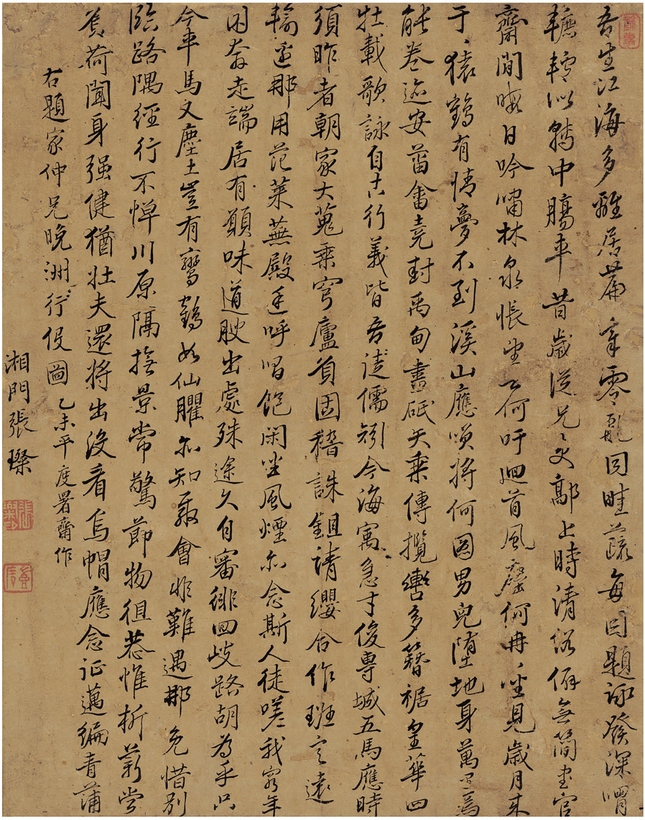 吾生江海多離居篇章零亂同畦蔬每因題詠發深喟
轆轤似轉中腸車昔歲從兄文鄗上時清俗俭無簡書官
齋閒暇日吟嘯林泉悵望何吁迴首風塵何冉冉坐見歲月來
于于猿鶴有情夢不到溪山應笑將何圖男兒墮地身萬里焉
能卷迹安菑畬堯封禹甸書砥矢乘傳攬轡多簪裾皇華四
牡載歌詠自古行義皆吾徒儒術今海寓急才俊專城五馬應時
須昨者朝家大蒐乘穹廬負固稽誅鉏請纓合作班定遠
輸邊那用范萊蕪殿廷呼唱飽閑坐風煙亦念斯人徒嗟我窮年
困奔走端居有願味道腴出處殊途久自審徘徊歧路胡為乎只
今車馬又塵土豈有鸞鶴如仙臞亦知歡會非難遇那免惜別
臨路隅經行不憚川原隔撫景常驚節物徂恭惟析薪嘗
負荷聞身强健猶壯夫還將出沒看烏帽應念征邁編青蒲
右題家仲兄晚洲行役圖乙未平度署齋作
湘門張璨